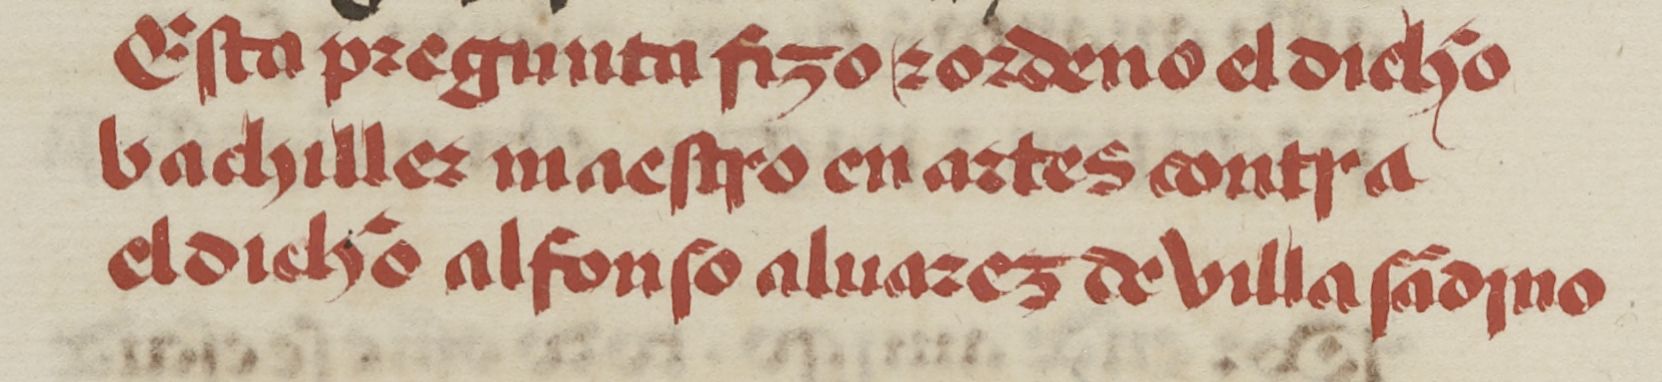 Esta pregunta fizo ⁊ ordeno el dicħo
bachiller maestro en artes contra
el dicħo alfonso aluarez de villa sãdino